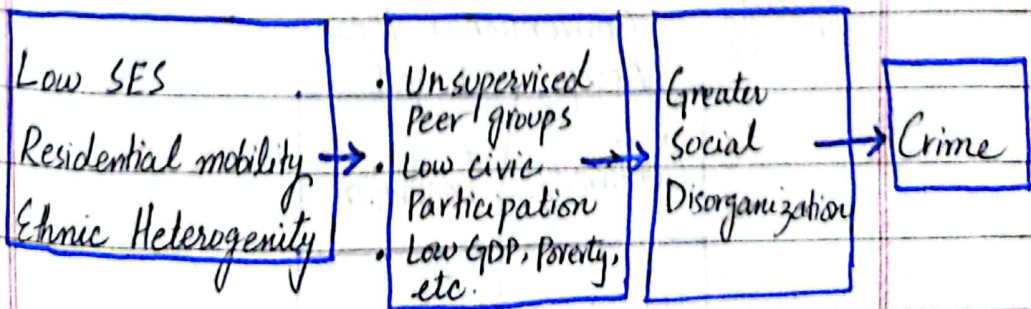 Low SES
Residential mobility
Ethnic Heterogenity
• Unsupervised
Peer groups
• Low civic
Participation
• Low GDP, Poverty,
etc.
Greater
Social
Disorganization
Crime